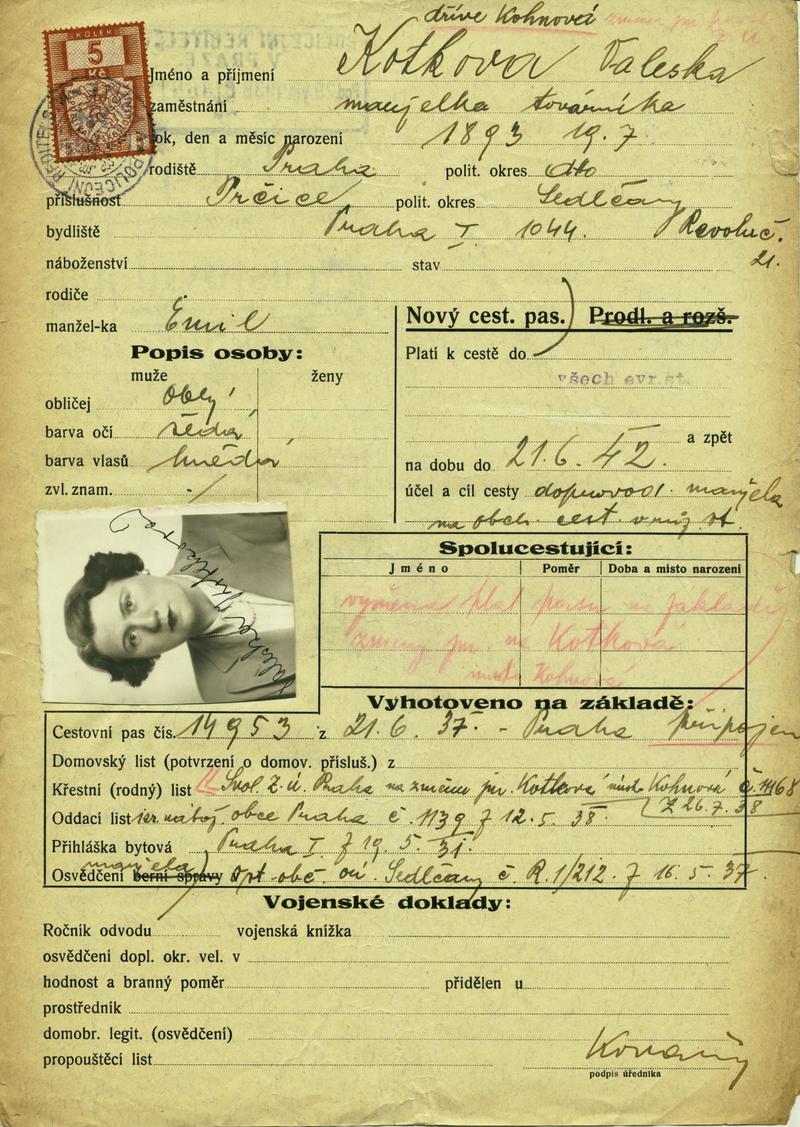 dříve Kohnová změna jm.
KOLEK
5
Kč
POLICEJNÍ ŘEDITELS
Jméno a příjmení Kotková Valeska
zaměstnání manželka továrníka
rok, den a měsíc narození 1893 19.7
rodiště Praha polit. okres dto
příslušnost Prčice polit. okres Sedlčany
bydliště Praha I 1044. Revoluč.
21.
náboženství stav
rodiče
manžel-ka Emil
Nový cest. pas. Prodl. a rozš.
Popis osoby:
Platí k cestě do
muže ženy
všech evr.st.
obličej oblý
barva očí šedá
a zpět
barva vlasů hnědá
na dobu do 21.6.42.
zvl. znam. ./
účel a cíl cesty doprovod manžela
na obch. cest. v různ. st.
Valeska Kotková
Spolucestující:
Jméno Poměr Doba a místo narození
výměna plat. pasu na základě
změny jm. na Kotková
místo Kohnová
Vyhotoveno na základě:
Cestovní pas čís. 14953 z 21.6.37. - Praha připojen
Domovský list (potvrzení o domov. přísluš.) z
Křestní (rodný) list Svol. Z.ú. Praha na změnu jm. Kotková míst. Kohnová č.
z 26.7.38
Oddací list isr. nábož. obce Praha č 1139 z 12.5.38.
Přihláška bytová Praha I z 19.5.31.
manžela
Osvědčení berní správy opt. obč. oú. Sedlčany č. R.1/212 z 16.5.37.
Vojenské doklady:
Ročník odvodu vojenská knížka
osvědčení dopl. okr. vel. v
hodnost a branný poměr přidělen u
prostředník
domobr. legit. (osvědčení)
propouštěcí list
podpis úředníka